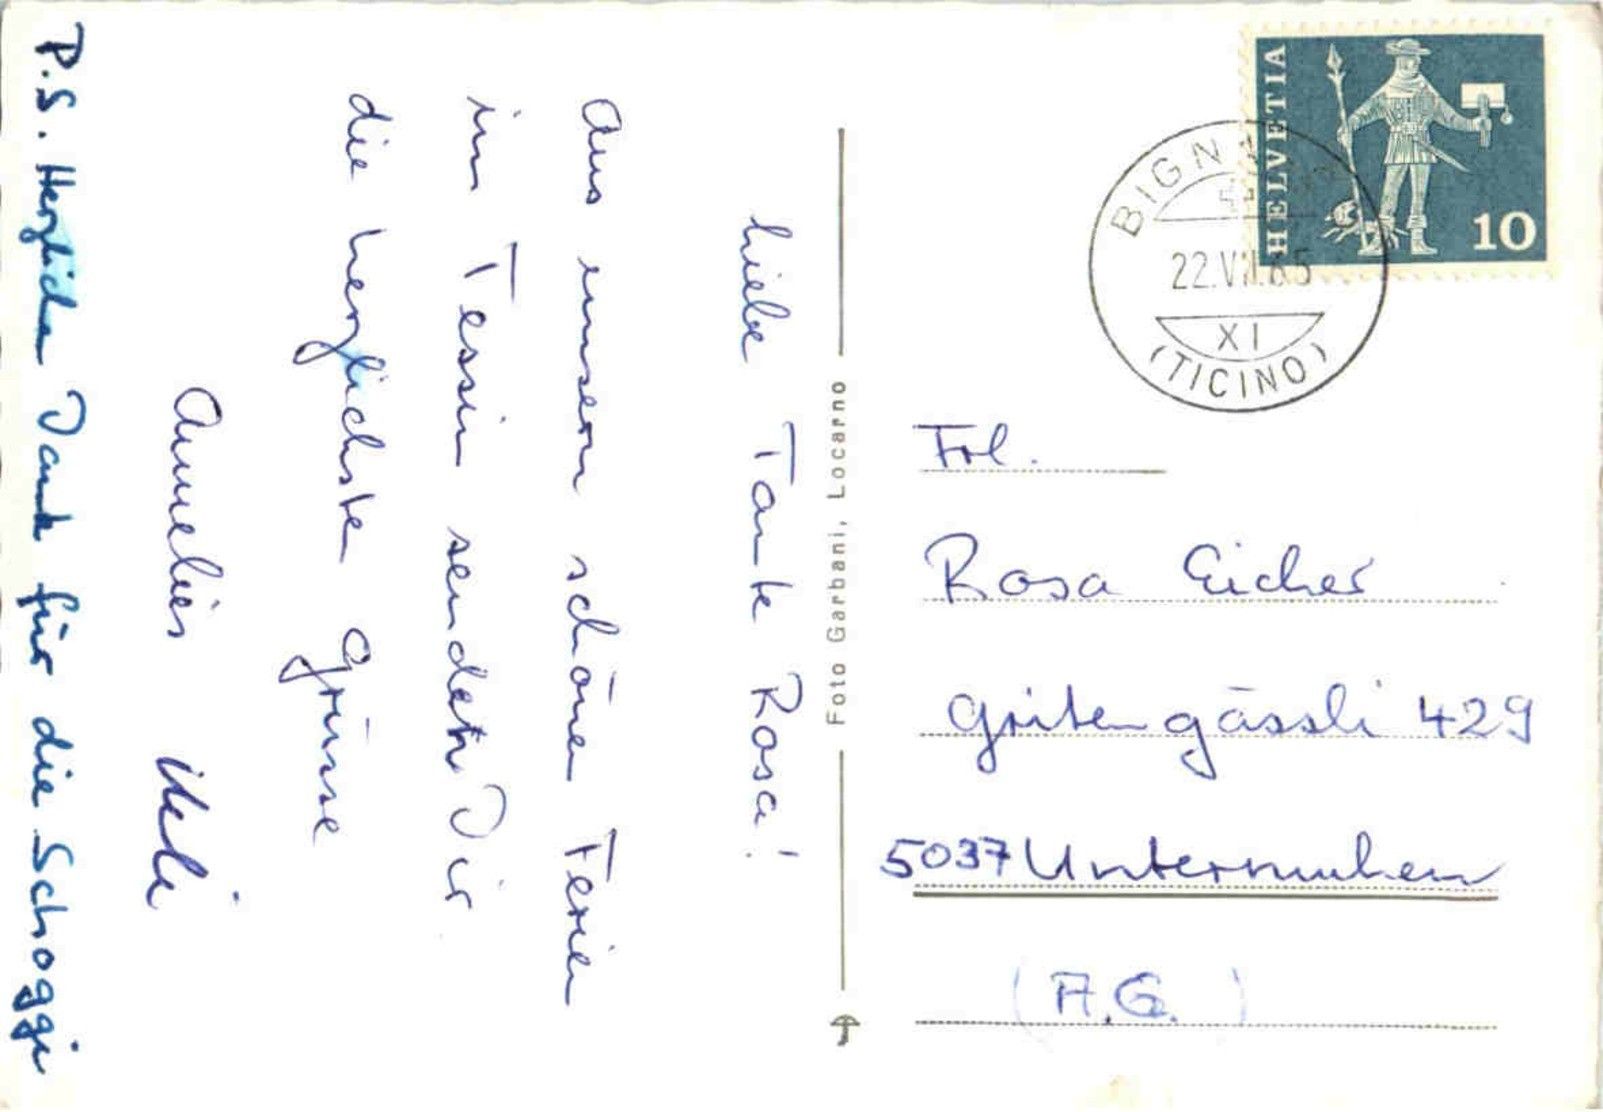 Liebe Tante Rosa!
Aus unsern schönen Ferien
im Tessin sendet Dir
die herzlichsten Grüsse
Annelies Ueli
P.S. Herzlichen Dank für die Schoggi
Foto Garbani, Locarno
HELVETIA
10
22.VII.65
XI
(TICINO)
Frl.
Rosa Eicher
Gritengässli 429
5037 Untermuhen
(A.G.)